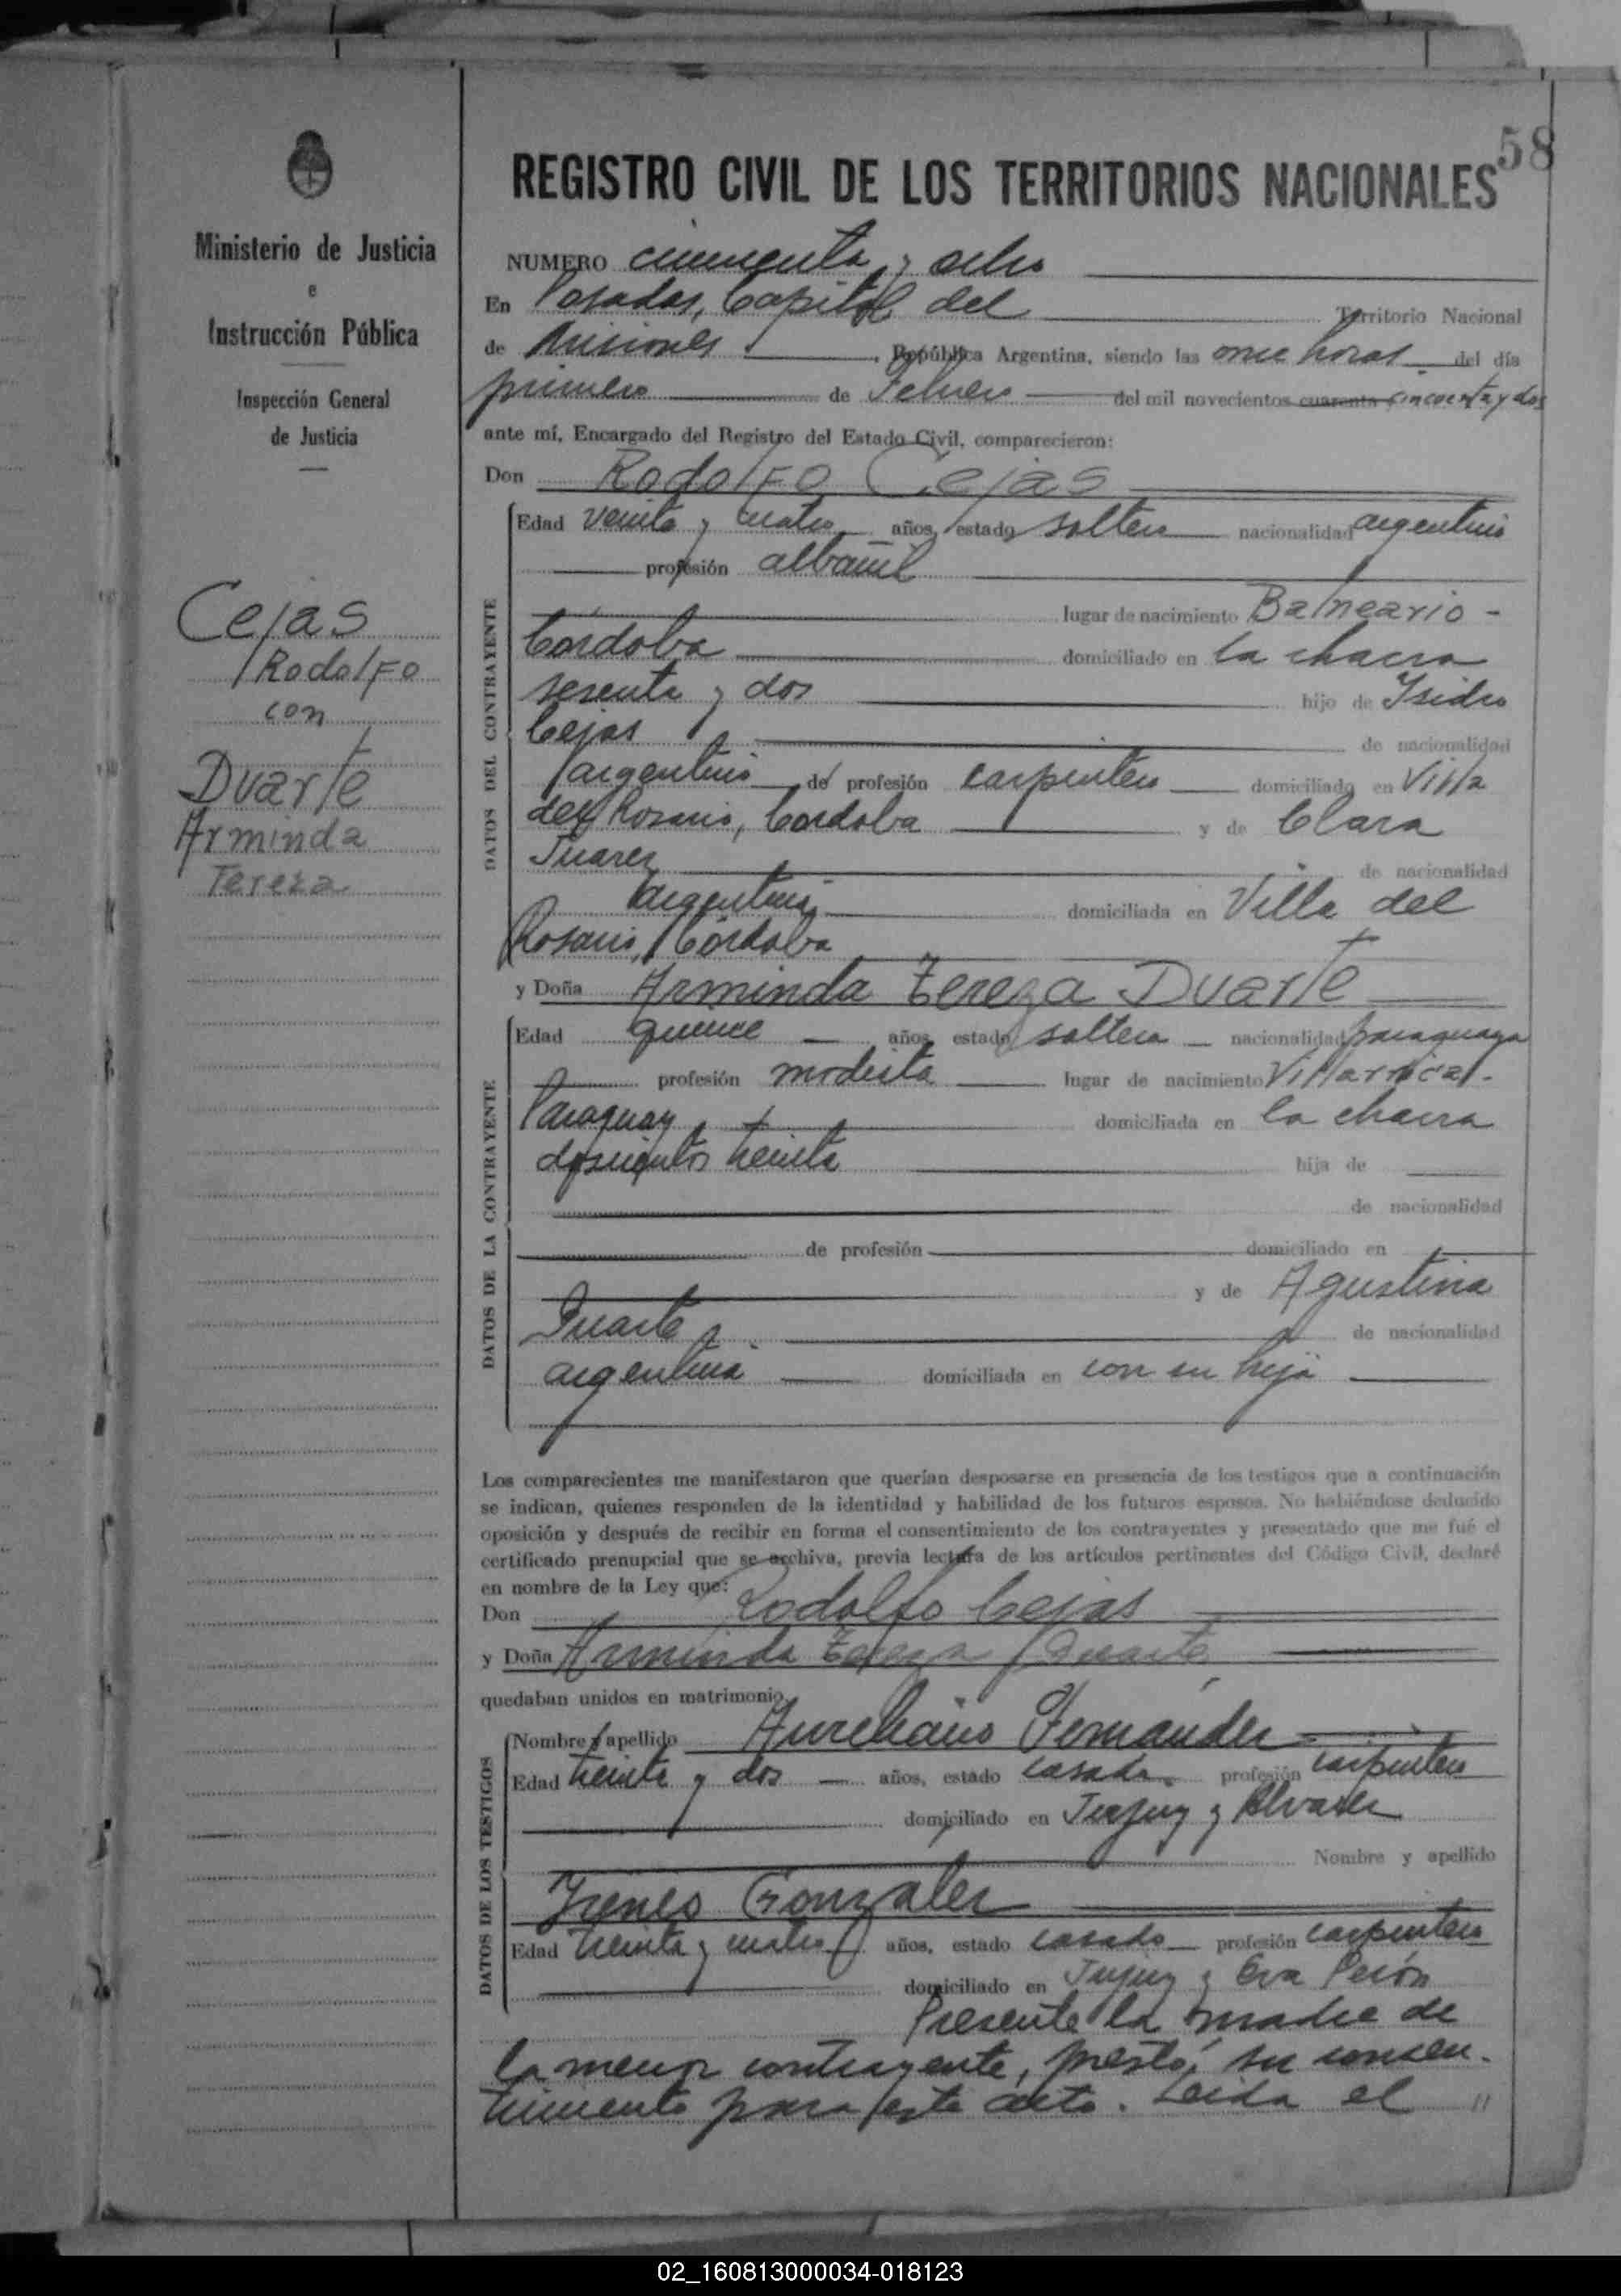 58
REGISTRO CIVIL DE LOS TERRITORIOS NACIONALES
Ministerio de Justicia
e
Instrucción Pública
Inspección General
de Justicia
Cejas
Rodolfo
con
Duarte
Arminda
Tereza
NUMERO cincuenta y ocho
En Posadas, Capital del Territorio Nacional
de Misiones, República Argentina, siendo las once horas del día
primero de Febrero del mil novecientos cuarenta cincuenta y dos
ante mí, Encargado del Registro del Estado Civil, comparecieron:
Don Rodolfo Cejas
DATOS DEL CONTRAYENTE
Edad veinte y cuatro años, estado soltero nacionalidad argentino
profesión albañil
lugar de nacimiento Balneario -
Córdoba domiciliado en la chacra
sesenta y dos hijo de Isidro
Cejas de nacionalidad
argentino de profesión carpintero domiciliado en Villa
del Rosario, Córdoba y de Clara
Juarez de nacionalidad
argentina domiciliada en Villa del
Rosario, Córdoba
y Doña Arminda Tereza Duarte
DATOS DE LA CONTRAYENTE
Edad quince años, estado soltera nacionalidad paraguaya
profesión modista lugar de nacimiento Villarrica -
Paraguay domiciliada en la chacra
doscientos treinta hija de
de nacionalidad
de profesión domiciliado en
y de Agustina
Duarte de nacionalidad
argentina domiciliada en con su hija
Los comparecientes me manifestaron que querían desposarse en presencia de los testigos que a continuación
se indican, quienes responden de la identidad y habilidad de los futuros esposos. No habiéndose deducido
oposición y después de recibir en forma el consentimiento de los contrayentes y presentado que me fué el
certificado prenupcial que se archiva, previa lectura de los artículos pertinentes del Código Civil, declaré
en nombre de la Ley que:
Don Rodolfo Cejas
y Doña Arminda Tereza Duarte
quedaban unidos en matrimonio.
DATOS DE LOS TESTIGOS
Nombre y apellido Aureliano Fernandez
Edad treinta y dos años, estado casado profesión carpintero
domiciliado en Jujuy y Alvarez
Nombre y apellido
Ireneo Gonzalez
Edad treinta y cuatro años, estado casado profesión carpintero
domiciliado en Jujuy y Eva Perón
Presente la madre de
la menor contrayente, prestó su consen-
timiento para este acto. Leida el "
02_160813000034-018123